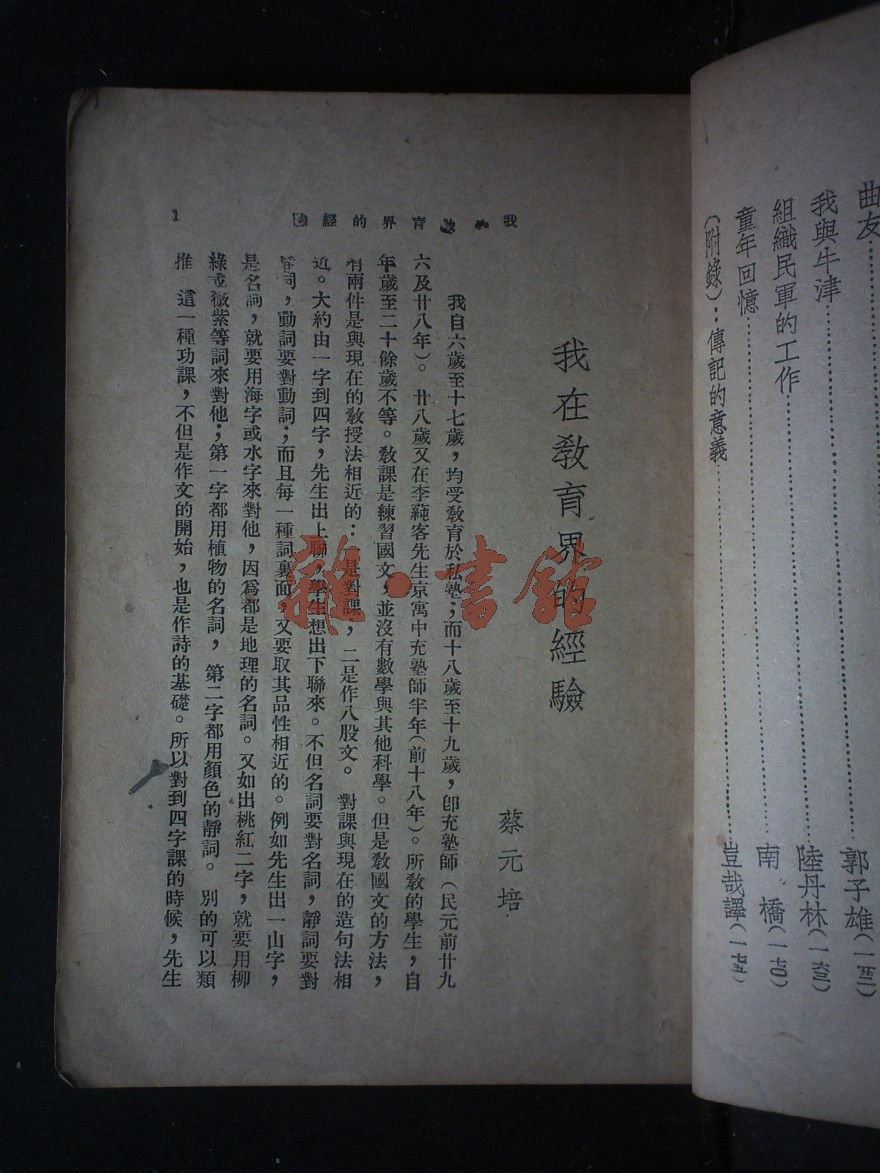 曲友……郭子雄(一五二)
我與牛津……陸丹林(一六三)
組織民軍的工作
童年回憶……南橋(一七〇)
(附錄):傳記的意義……豈哉譯(一七五)
我 育界的經
1
我在教育界的經驗
蔡元培
我自六歲至十七歲,均受教育於私塾;而十八歲至十九歲,卽充塾師(民元前廿九
六及廿八年)。廿八歲又在李蒓客先生京寓中充塾師半年(前十八年)。所教的學生,自
年歲至二十餘歲不等。教課是練習國文,並沒有數學與其他科學。但是教國文的方法,
有兩件是與現在的教授法相近的:是對課,二是作八股文。對課與現在的造句法相
近。大約由一字到四字,先生出上聯,學生想出下聯來。不但名詞要對名詞,靜詞要對
靜詞,動詞要對動詞;而且每一種詞裏面,又要取其品性相近的。例如先生出一山字,
是名詞,就要用海字或水字來對他,因爲都是地理的名詞。又如出桃紅二字,就要用柳
綠或薇紫等詞來對他;第一字都用植物的名詞,第二字都用顏色的靜詞。別的可以類
推 這一種功課,不但是作文的開始,也是作詩的基礎。所以對到四字課的時候,先生
雜·書館